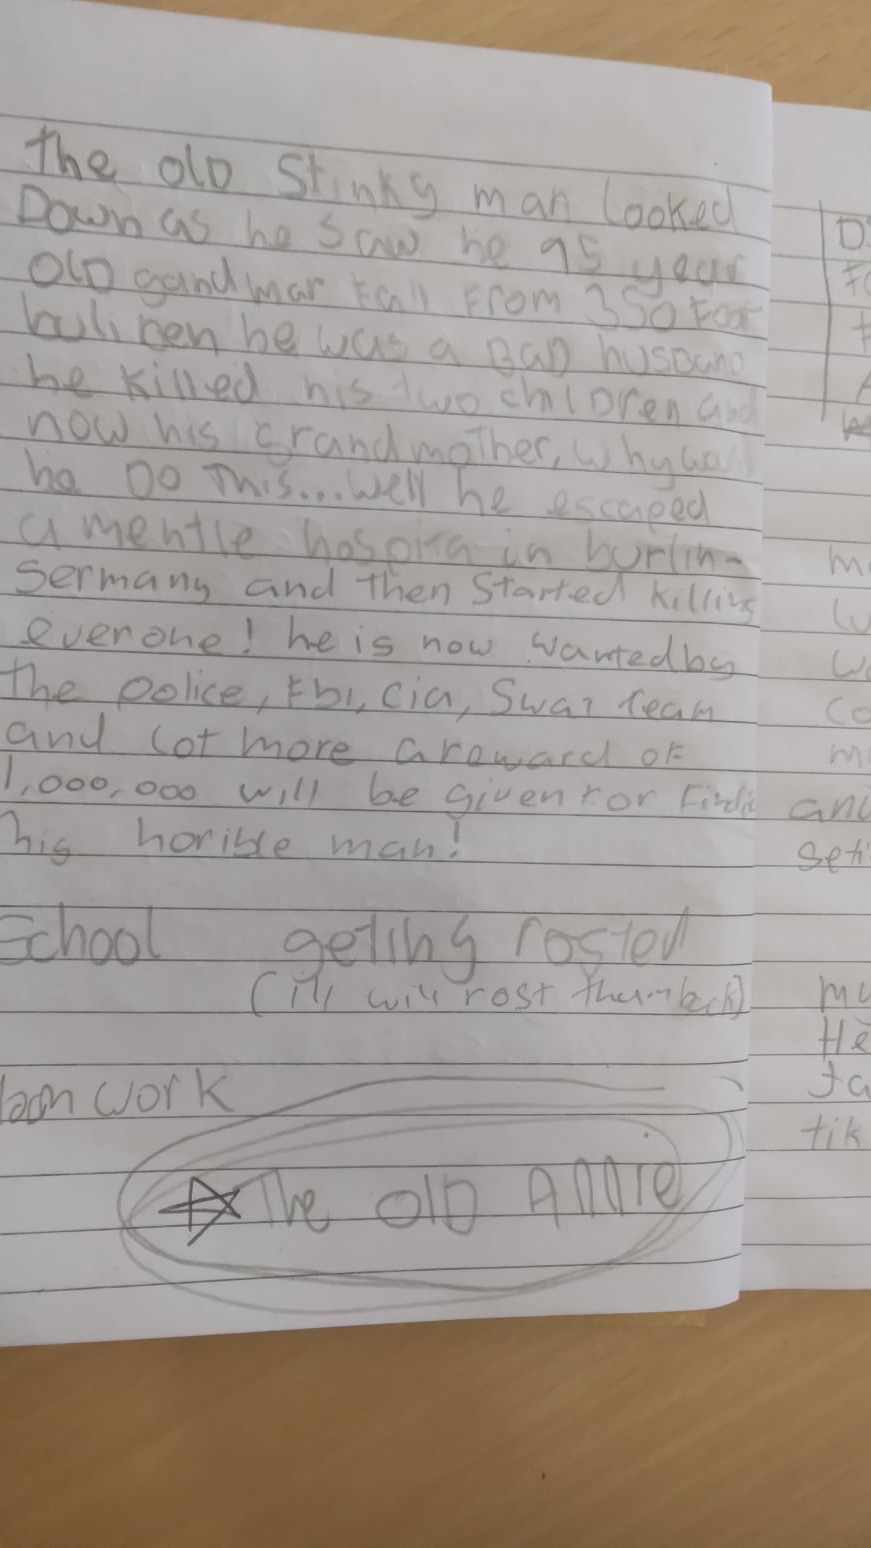 The old Stinky man looked
Down as he saw he 95 year
Old gandmar fall From 350 Foot
he was a BaD husband
he killed his two children and
now his grandmother, Why
he DO This... well he escaped
a mentle in burlin-
Germany and then Started killing
everone! he is now wanted by
the police, Fbi, cia, Swat Team
and lot more a reward of
1,000,000 will be given for
his horible man!
School geting rosted
(ill will rost them back)
work
The OlD